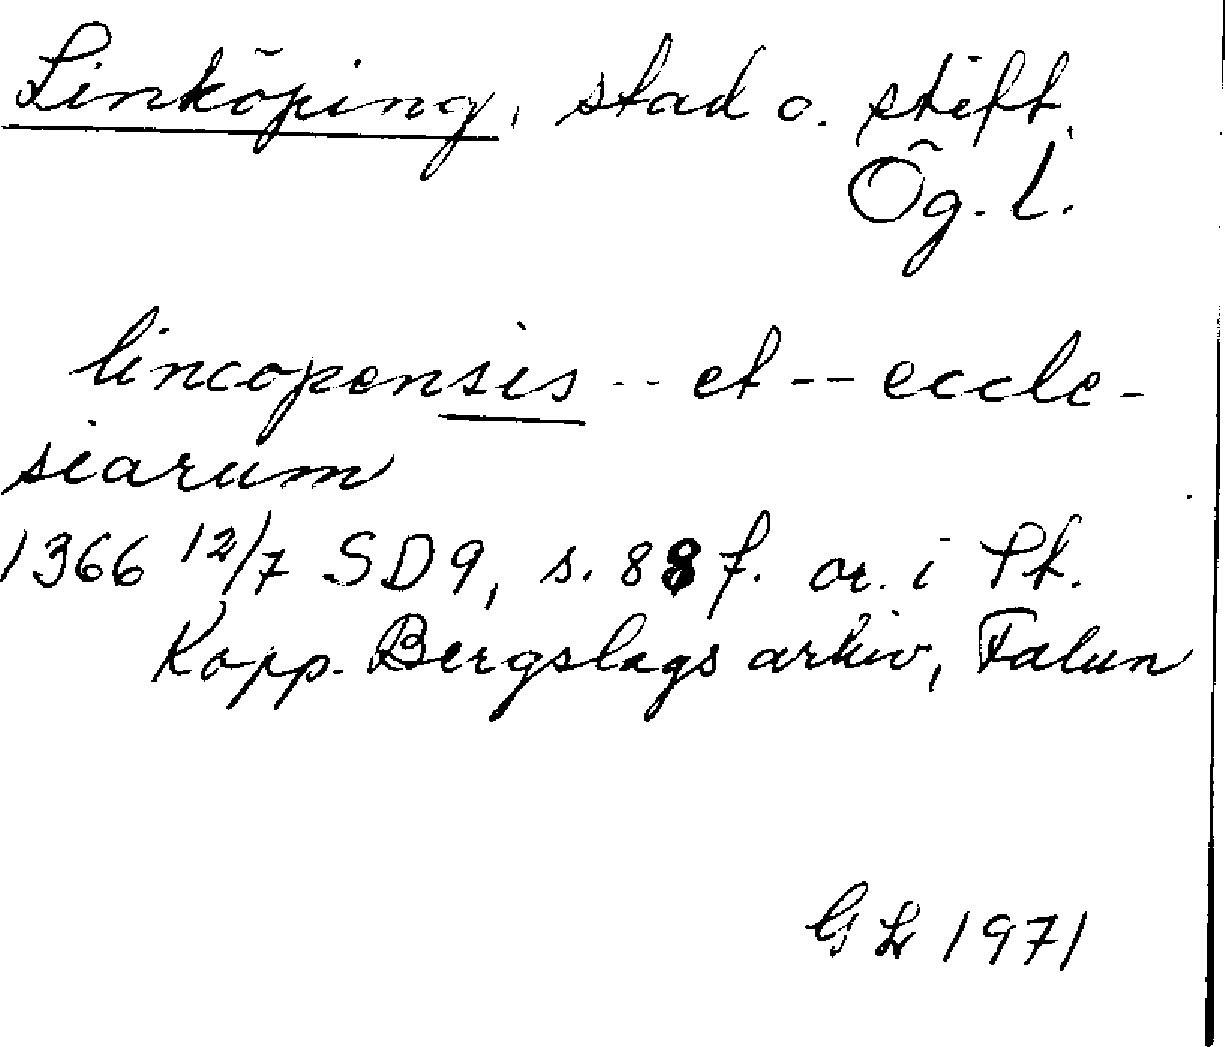 Linköping, stad o. stift,
Ög. l.
lincopensis -- et -- eccle-
siarum
1366 12/7 SD9, s. 88 f. or. i St.
Kopp. Bergslags arkiv, Falun
GL 1971